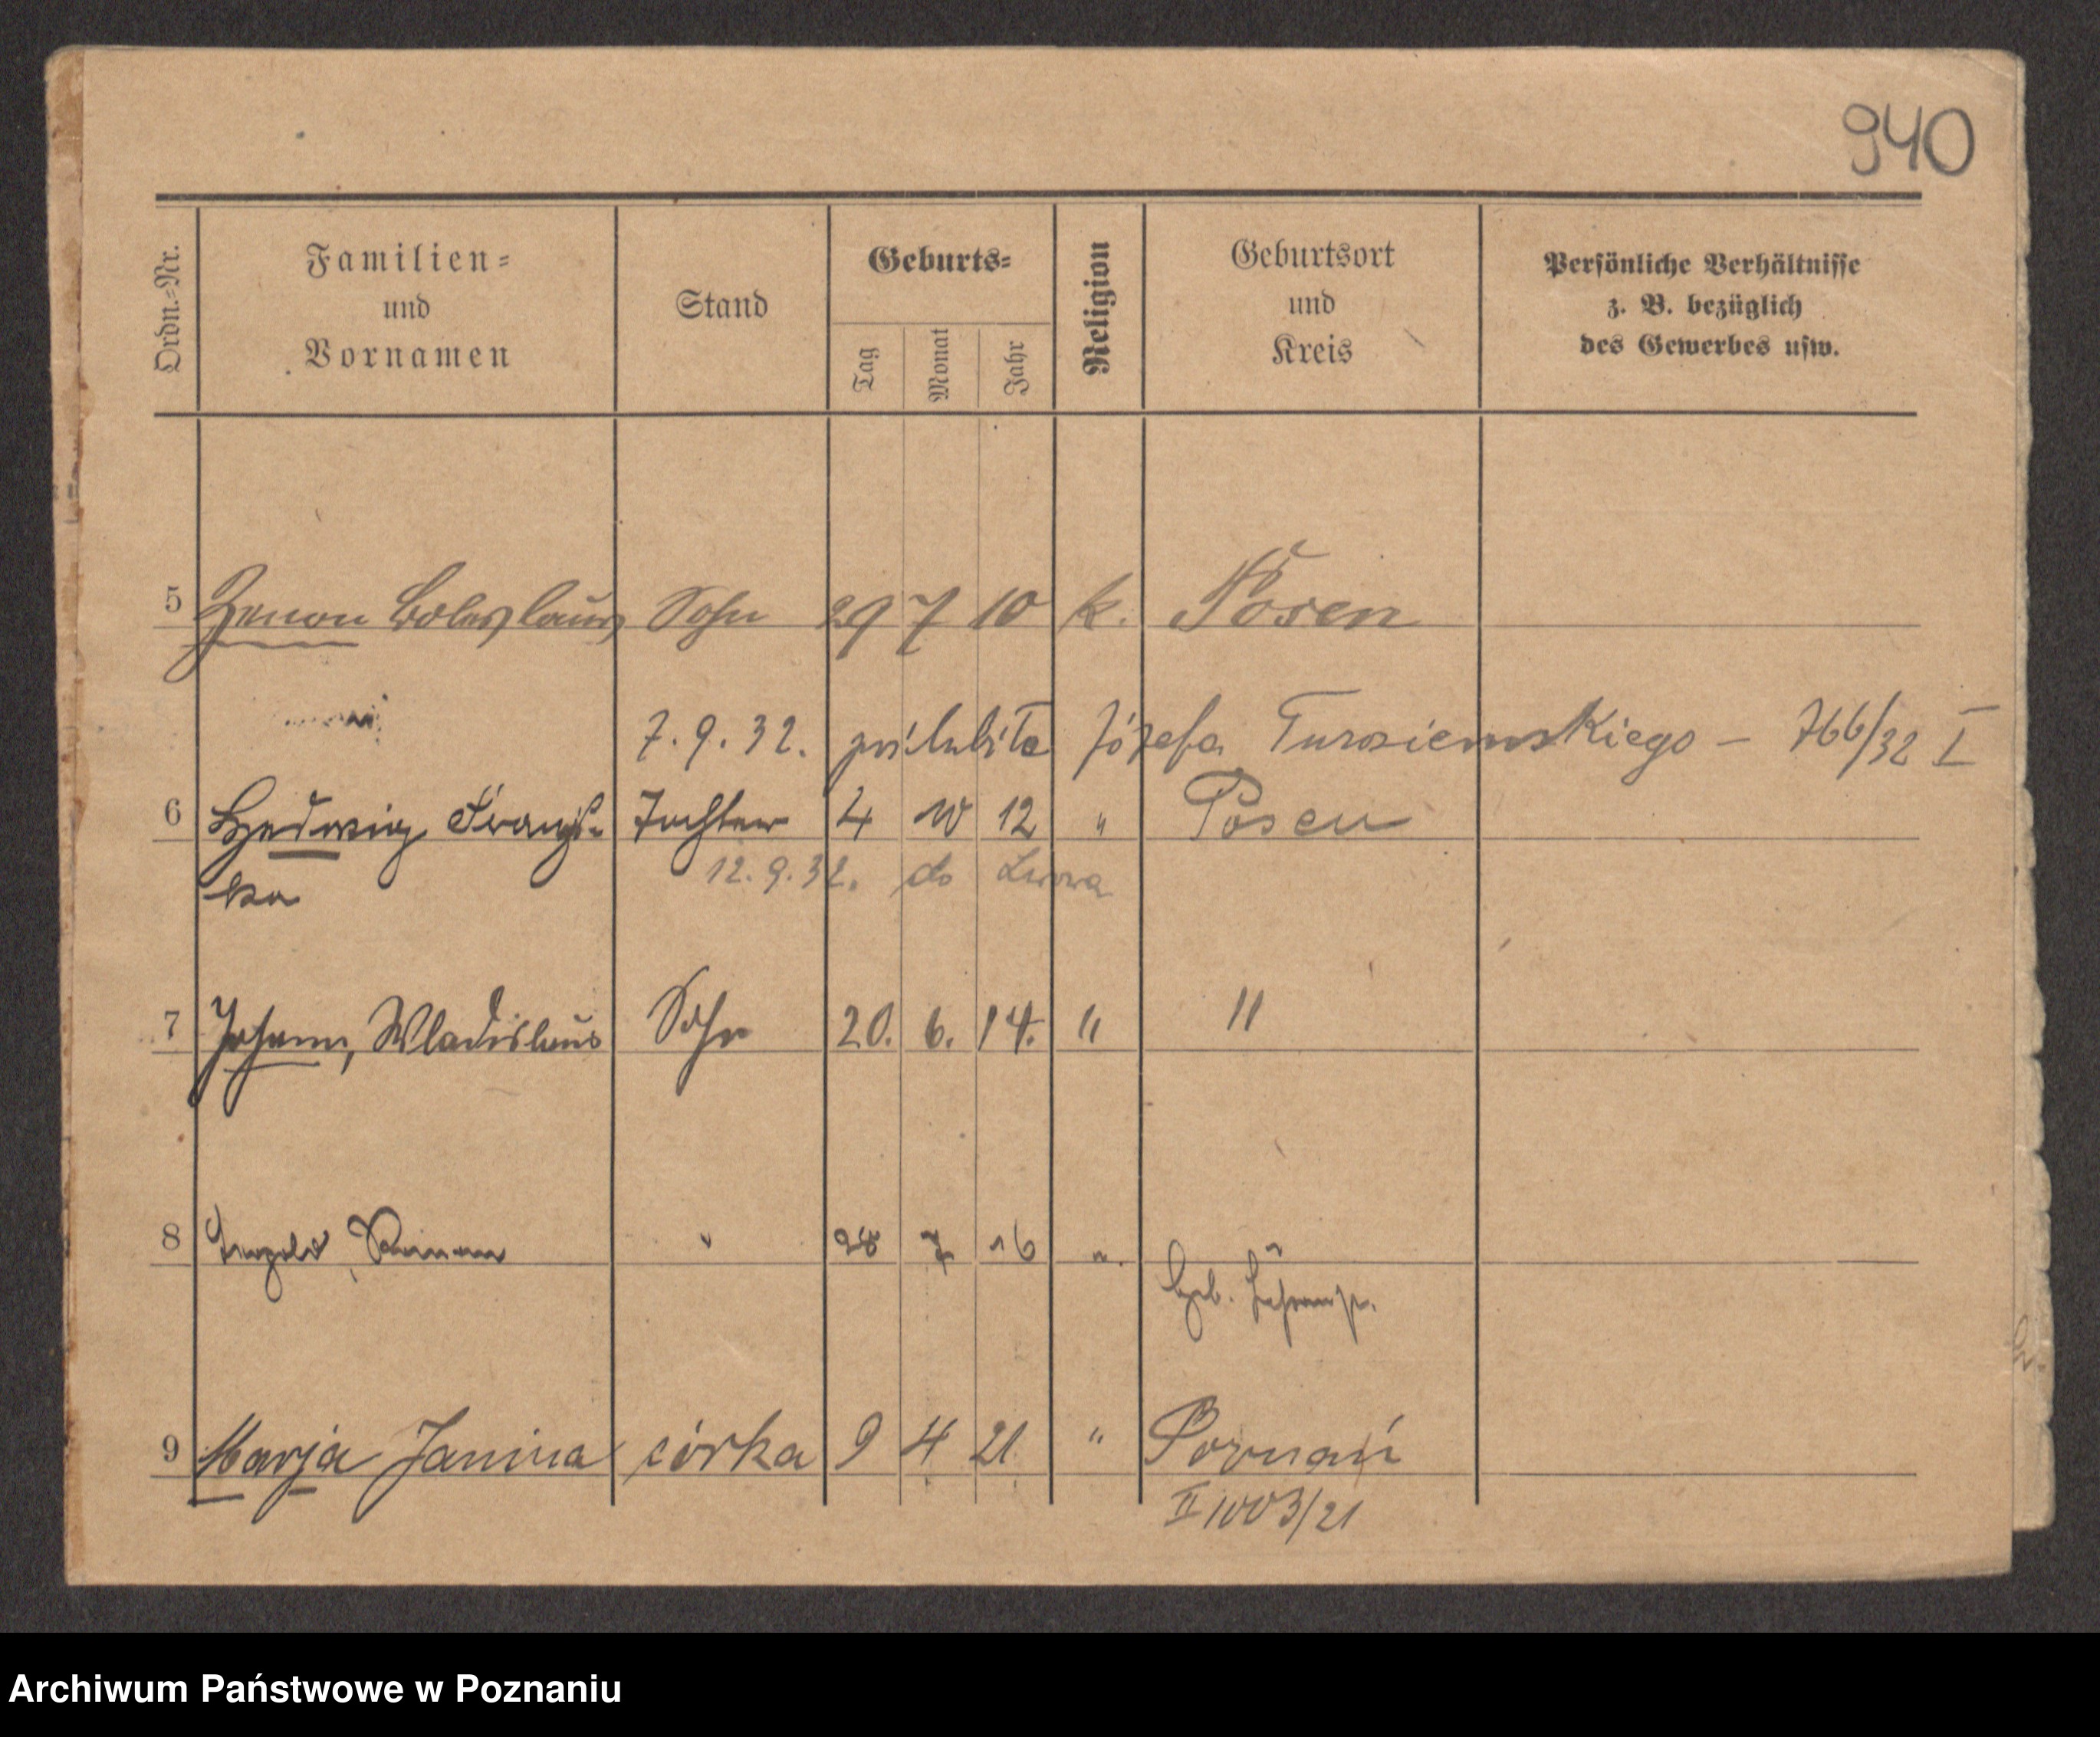 940
Ordn.-Nr.
Familien-
und
Vornamen
Stand
Geburts-
Tag
Monat
Jahr
Religion
Geburtsort
und
Kreis
Persönliche Verhältnisse
z. B. bezüglich
des Gewerbes usw.
5 Zenon Boleslaus Sohn 29 7 10 k. Posen
7.9.32. poślubiła Józefa 766/32 I
6 Hedwig Franzis- Tochter 4 10 12 " Posen
ka
12.9.32. do Lwowa
7 Johann, Wladislaus Sohn 20. 6. 14. " "
8 Roman " 28 7 16 "
Geb.
9 Marja Janina córka 9 4 21 " Poznań
II 1003/21
Archiwum Państwowe w Poznaniu